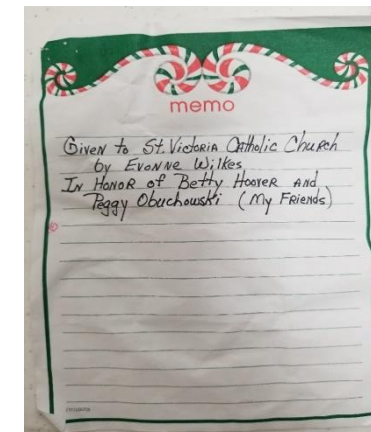 memo
Given to St. Victoria Catholic Church
by Evonne Wilkes
In Honor of Betty Hoover And
Peggy Obuchowski (My Friends)